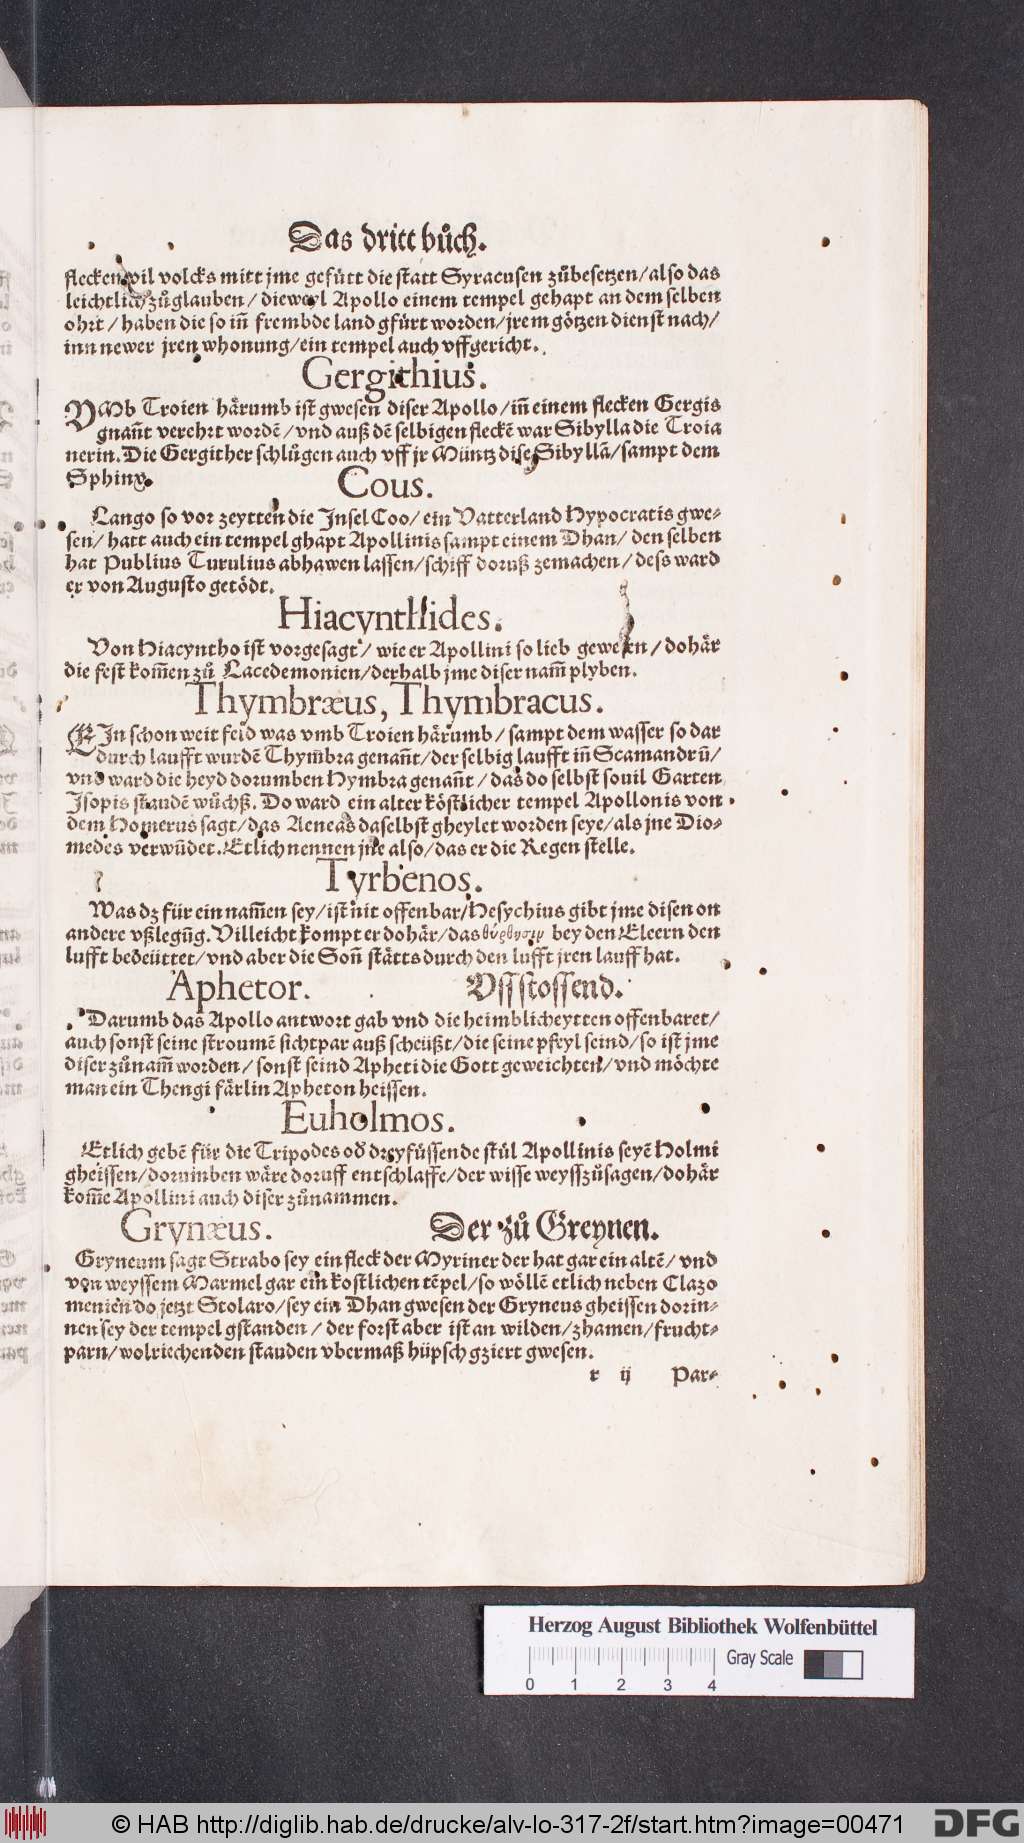 Das dritt bůch.
flecken vil volcks mitt jme gefürt die statt Syracusen zůbesetzen/also das
leichtlich zůglauben/ dieweyl Apollo einem tempel gehapt an dem selben
ohrt/ haben die so iñ frembde land gfürt worden/jrem götzen dienst nach/
inn newer jren whonung/ein tempel auch vffgericht.
Gergithius.
VMb Troien härumb ist gwesen diser Apollo/iñ einem flecken Gergis
gnañt verehrt wordē/vnd auß dē selbigen fleckē war Sibylla die Troia
nerin. Die Gergither schlůgen auch vff jr Müntz dise Sibyllā/sampt dem
Sphinx.
Cous.
Lango so vor zeytten die Insel Coo/ ein Vatterland Hypocratis gwe-
sen/ hatt auch ein tempel ghapt Apollinis sampt einem Dhan/ den selben
hat Publius Turulius abhawen lassen/schiff doruß zemachen/ dess ward
er von Augusto getödt.
Hiacynthides.
Von Hiacyntho ist vorgesagt/ wie er Apollini so lieb gewesen/ dohär
die fest kom̄en zů Lacedemonien/derhalb jme diser nam̄ plyben.
Thymbræus, Thymbracus.
EIn schon weit feld was vmb Troien härumb/ sampt dem wasser so dar
durch laufft wurdē Thym̄bra genañt/der selbig laufft iñ Scamandrū/
vnd ward die heyd dorumben Hymbra genañt/ das do selbst souil Garten
Isopis staudē wůchß. Do ward ein alter köstlicher tempel Apollonis von
dem Homerus sagt/das Aeneas daselbst gheylet worden seye/als jne Dio-
medes verwūdet. Etlich nennen jne also/das er die Regen stelle.
Tyrbenos.
Was dz für ein nam̄en sey/ist nit offenbar/Hesychius gibt jme disen on
andere vßlegūg. Villeicht kompt er dohär/das bey den Eleern den
lufft bedeüttet/vnd aber die Soñ stätts durch den lufft jren lauff hat.
Aphetor. Vssstossend.
Darumb das Apollo antwort gab vnd die heimblicheytten offenbaret/
auch sonst seine stroumē sichtpar auß scheüßt/die seine pfeyl seind/so ist jme
diser zůnam̄ worden/ sonst seind Apheti die Gott geweichten/vnd möchte
man ein Thengi färlin Apheton heissen.
Euholmos.
Etlich gebē für die Tripodes od̄ dreyfüssende stůl Apollinis seyē Holmi
gheissen/dorumben wäre doruff entschlaffe/der wisse weysszůsagen/dohär
kom̄e Apollini auch diser zůnammen.
Grynæus. Der zů Greynen.
Gryneum sagt Strabo sey ein fleck der Myriner der hat gar ein altē/ vnd
von weyssem Marmel gar ein kostlichen tēpel/so wöllē etlich neben Clazo
menien do jetzt Stolaro/sey ein Dhan gwesen der Gryneus gheissen dorin-
nen sey der tempel gstanden/ der forst aber ist an wilden/zhamen/frucht-
parn/wolriechenden stauden vbermaß hüpsch gziert gwesen.
r ij Par-
Herzog August Bibliothek Wolfenbüttel
Gray Scale
0 1 2 3 4
© HAB http://diglib.hab.de/drucke/alv-lo-317-2f/start.htm?image=00471
DFG